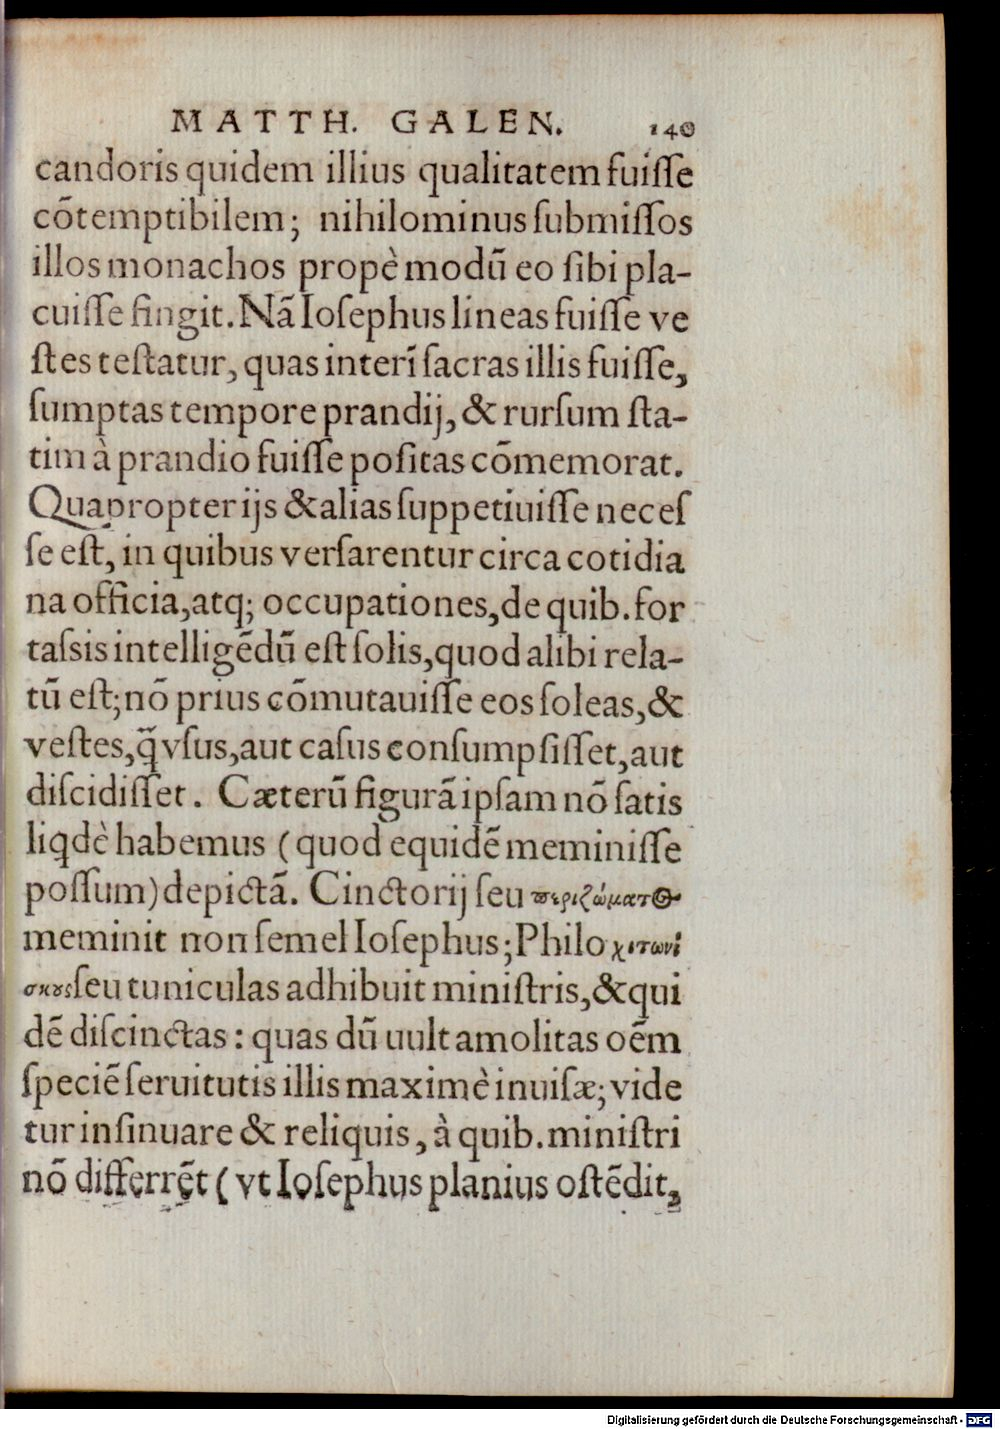 MATTH. GALEN. 140
candoris quidem illius qualitatem fuiſſe
cõtemptibilem; nihilominus ſubmiſſos
illos monachos propè modũ eo ſibi pla-
cuiſſe fingit. Nã Ioſephus lineas fuiſſe ve
ſtes teſtatur, quas interĩ ſacras illis fuiſſe,
ſumptas tempore prandij, & rurſum ſta-
tim à prandio fuiſſe poſitas cõmemorat.
Quapropter ijs & alias ſuppetiuiſſe neceſ
ſe eſt, in quibus verſarentur circa cotidia
na officia, atq; occupationes, de quib. for
taſsis intelligẽdũ eſt ſolis, quod alibi rela-
tũ eſt; nõ prius cõmutauiſſe eos ſoleas, &
veſtes, q̃ vſus, aut caſus conſumpſiſſet, aut
diſcidiſſet. Cæterũ figurã ipſam nõ ſatis
liqdè habemus (quod equidẽ meminiſſe
poſſum) depictã. Cinctorij ſeu περιζώματος
meminit non ſemel Ioſephus; Philo χιτωνί
σκους ſeu tuniculas adhibuit miniſtris, & qui
dẽ diſcinctas: quas dũ uult amolitas oẽm
ſpeciẽ ſeruitutis illis maximè inuiſæ; vide
tur inſinuare & reliquis, à quib. miniſtri
nõ differrẽt (vt Ioſephus planius oſtẽdit,
Digitalisierung gefördert durch die Deutsche Forschungsgemeinschaft - DFG